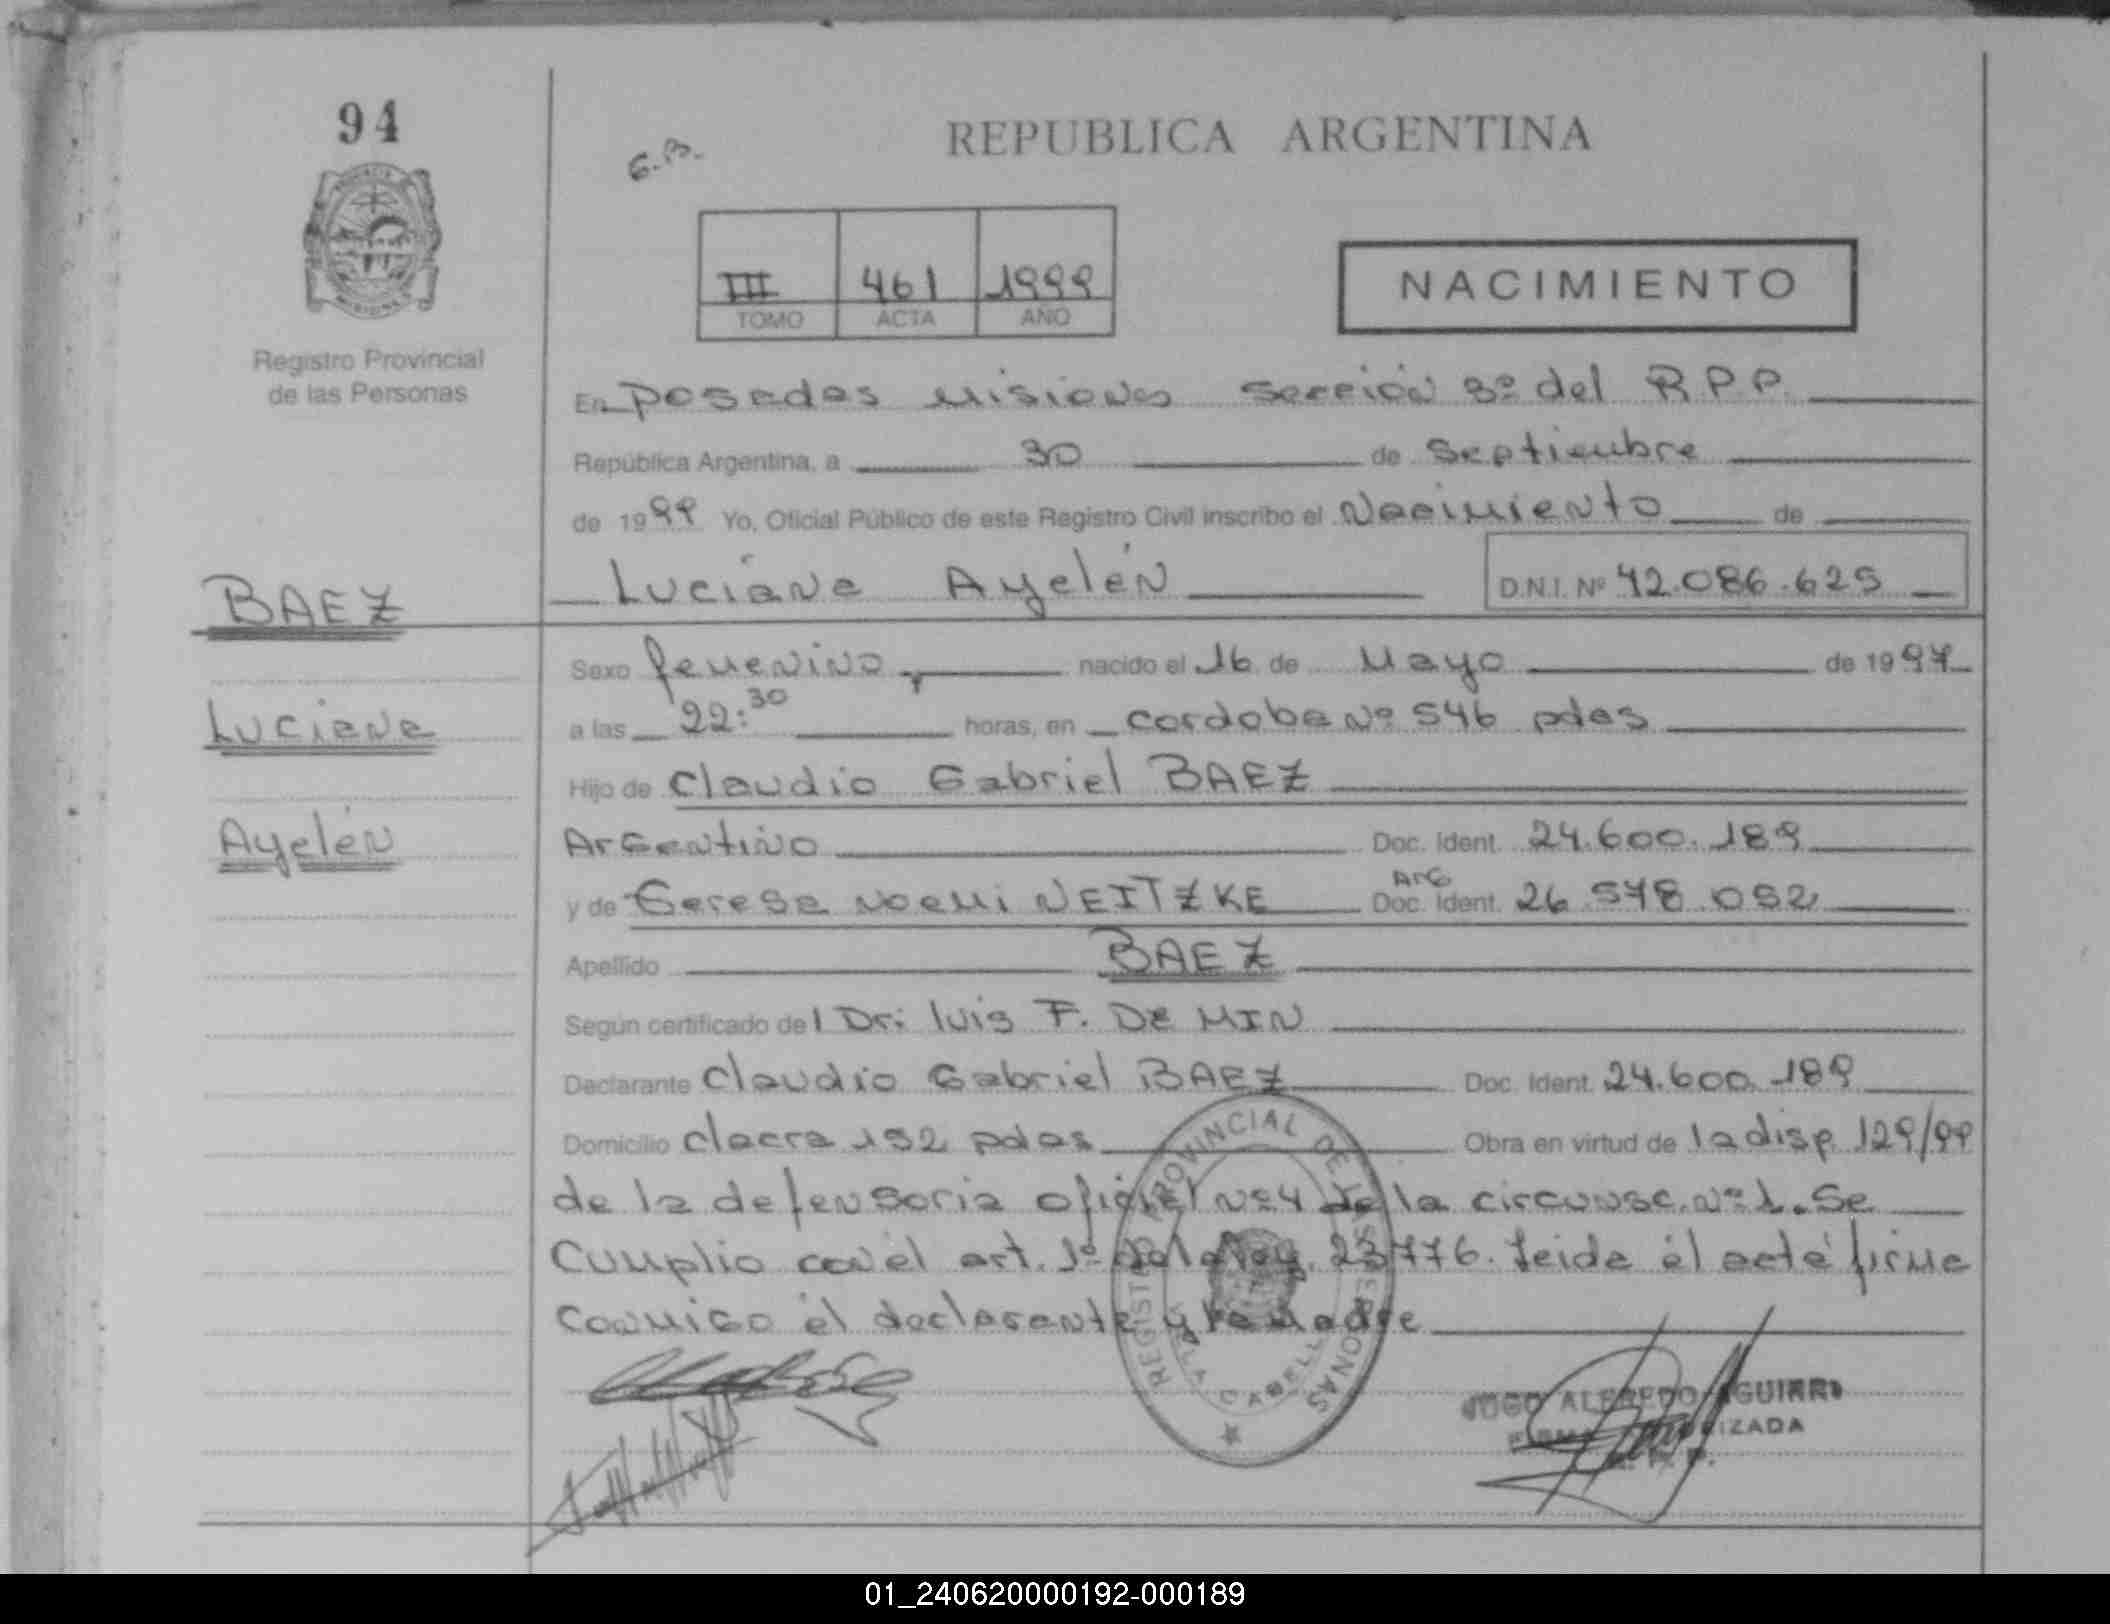 94
G.B.
REPUBLICA ARGENTINA
III 461 1999
TOMO ACTA AÑO
NACIMIENTO
Registro Provincial
de las Personas
En Posadas Misiones Sección 3º del R.P.P.
República Argentina, a 30 de Septiembre
de 1999 Yo, Oficial Público de este Registro Civil inscribo el Nacimiento de
Luciana Ayelén D.N.I. Nº 42.086.625
BAEZ
Luciana
Ayelén
Sexo femenino, nacido el 16 de Mayo de 1997
a las 22:30 horas, en cordoba Nº 546 pdas
Hijo de Claudio Gabriel BAEZ
Argentino Doc. Ident. 24.600.189
y de Teresa Noemi NEITZKE Arg Doc. Ident. 26.578.052
Apellido BAEZ
Según certificado del Dr: Luis F. De MIN
Declarante Claudio Gabriel BAEZ Doc. Ident. 24.600.189
Domicilio chacra 152 pdas Obra en virtud de la disp 129/99
de la defensoria oficial Nº 4 de la circunsc. Nº 1. Se
Cumplio con el art. 1º de la ley 23776. Leida el acta firma
conmigo el declarante y la madre
REGISTRO PROVINCIAL DE LAS PERSONAS
VILLA CABELLO
HUGO ALFREDO AGUIRRE
FIRMA AUTORIZADA
R. P. P.
01_240620000192-000189